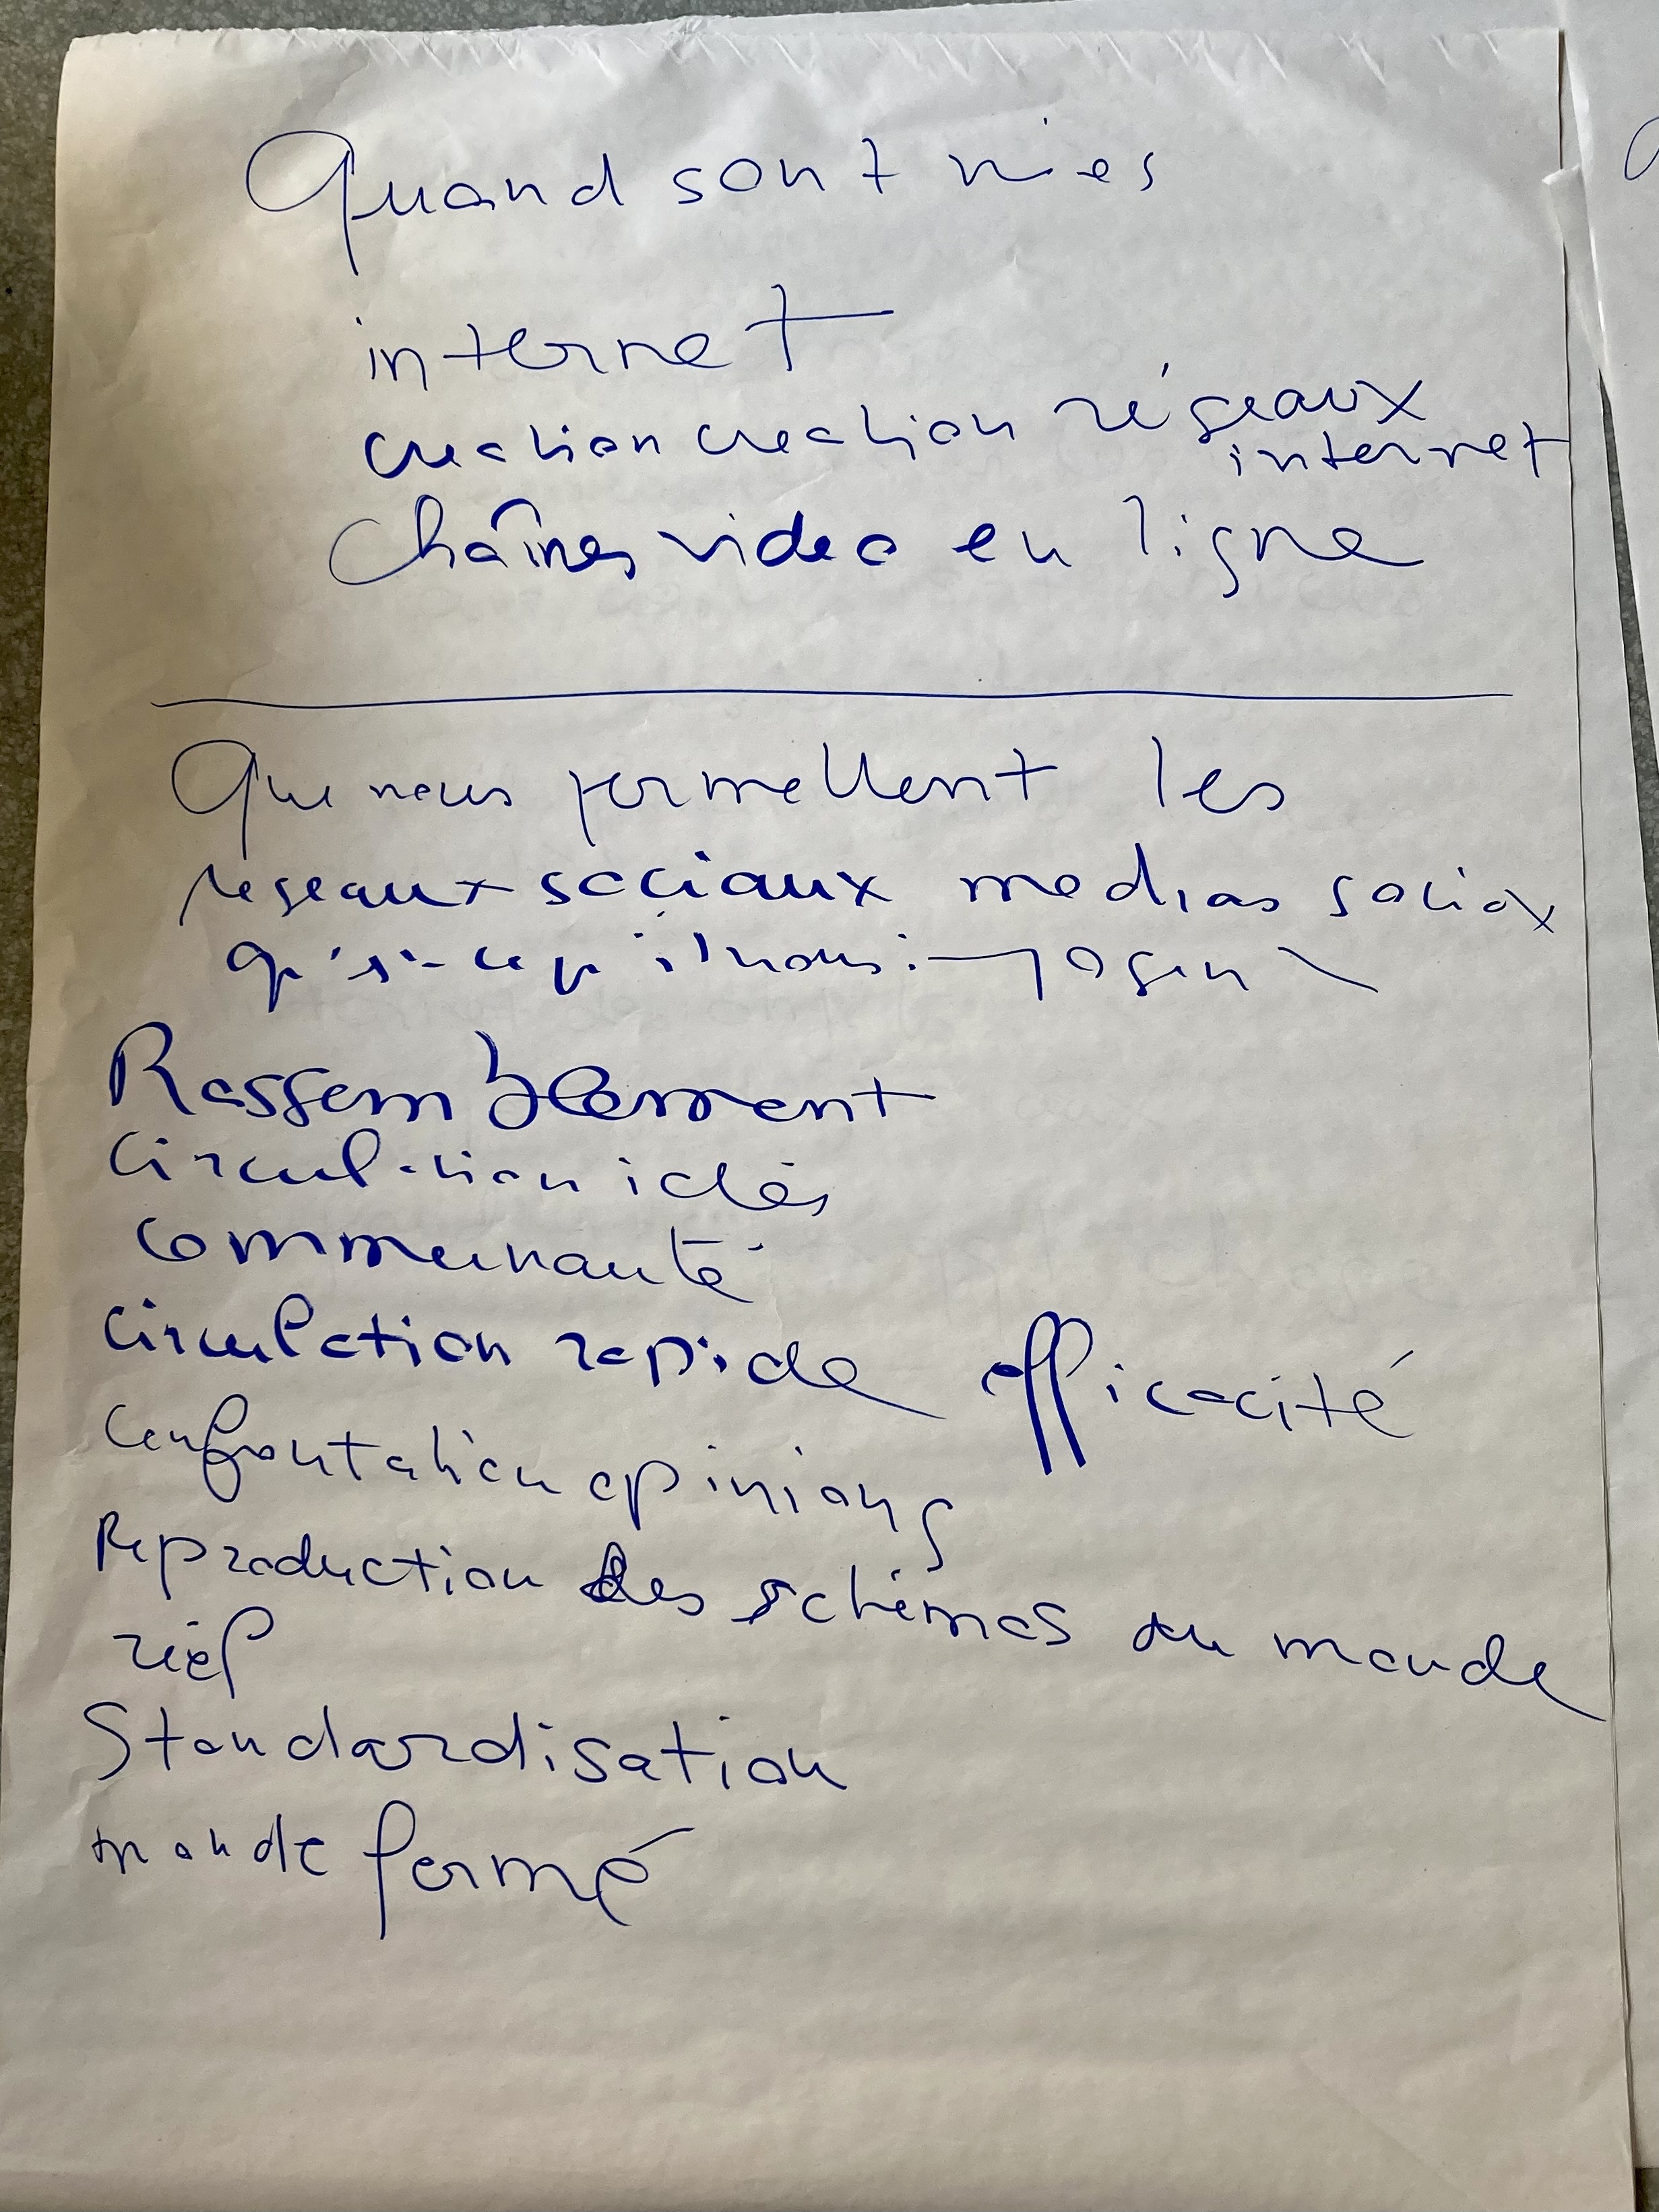 Quand sont nies
internet
creation creation réseaux
internet
Chaînes video en ligne
Que nous permettent les
reseaux sociaux medias sociax
Rassemblement
Circulation idés
Communauté
Circulation rapide efficacité
Confrontation opinions
Reproduction des schémas du monde
réel
Standardisation
monde fermé